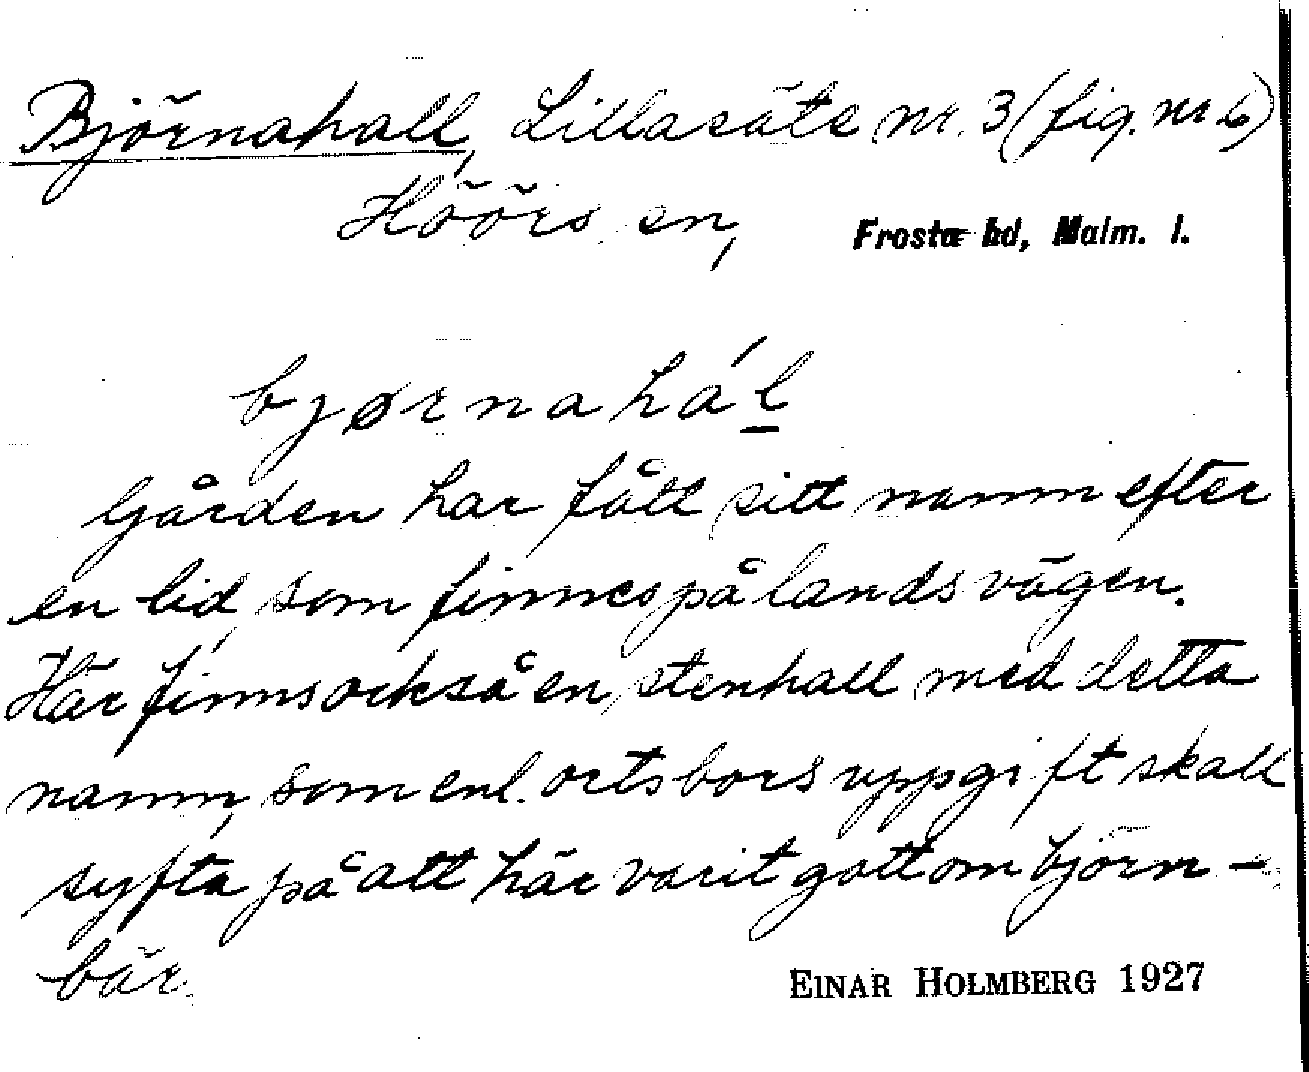 Björnahall, Lillasäte nr. 3 (fig. nr 6)
Höörs sn, Frosta hd, Malm. l.
bjørnahá́l
Gården har fått sitt namn efter
en lid, som finnes på landsvägen.
Här finns också en stenhall med detta
namn, som enl. ortsbors uppgift skall
syfta på att här varit gott om björn-
bär.
EINAR HOLMBERG 1927